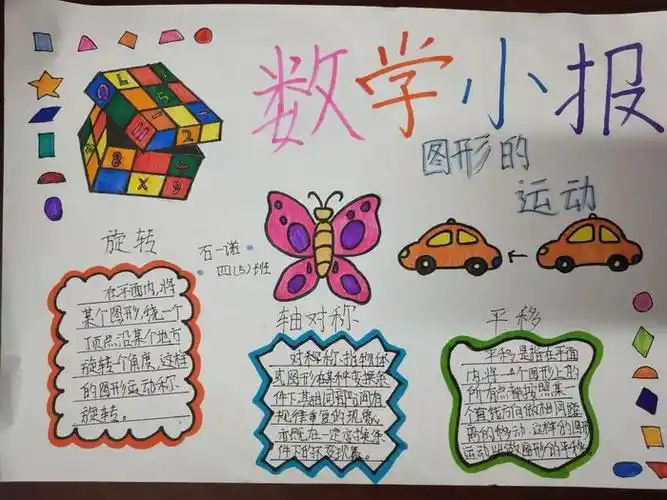 数学小报
图形的
运动
旋转
石一诺
四(5)班
在平面内,将
某个图形,绕一个
顶点沿某个地方
旋转个角度,这样
的图形运动称
旋转。
轴对称
对称称,指物体
或图形在某种变换条
件下,其相同部分间有
规律重复的现象,
亦既在一定变换条
件下的不变现象。
平移
平移,是指在平面
内,将一个图形上的
所有点都按照某一
个直线方向做相同距
离的移动,这样的图形
运动叫做图形的平移